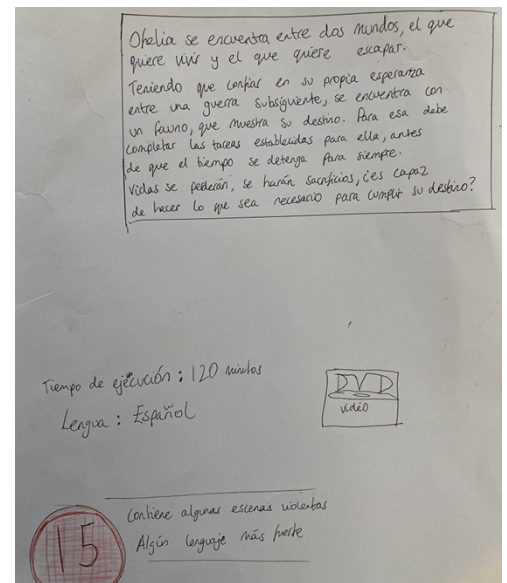 Ofhelia se encuentra entre dos mundos, el que
quiere vivir y el que quiere escapar.
Teniendo que confiar en su propia esperanza
entre una guerra subsiguiente, se encuentra con
un fauno, que muestra su destino. Para esa debe
completar las tareas establecidas para ella, antes
de que el tiempo se detenga para siempre.
Vidas se perderán, se harán sacrificios, ¿es capaz
de hacer lo que sea necesario para cumplir su destino?
Tiempo de ejecución : 120 minutos
Lengua : Español
DVD
vidéo
Contiene algunas escenas violentas
Algún lenguaje más fuerte
15